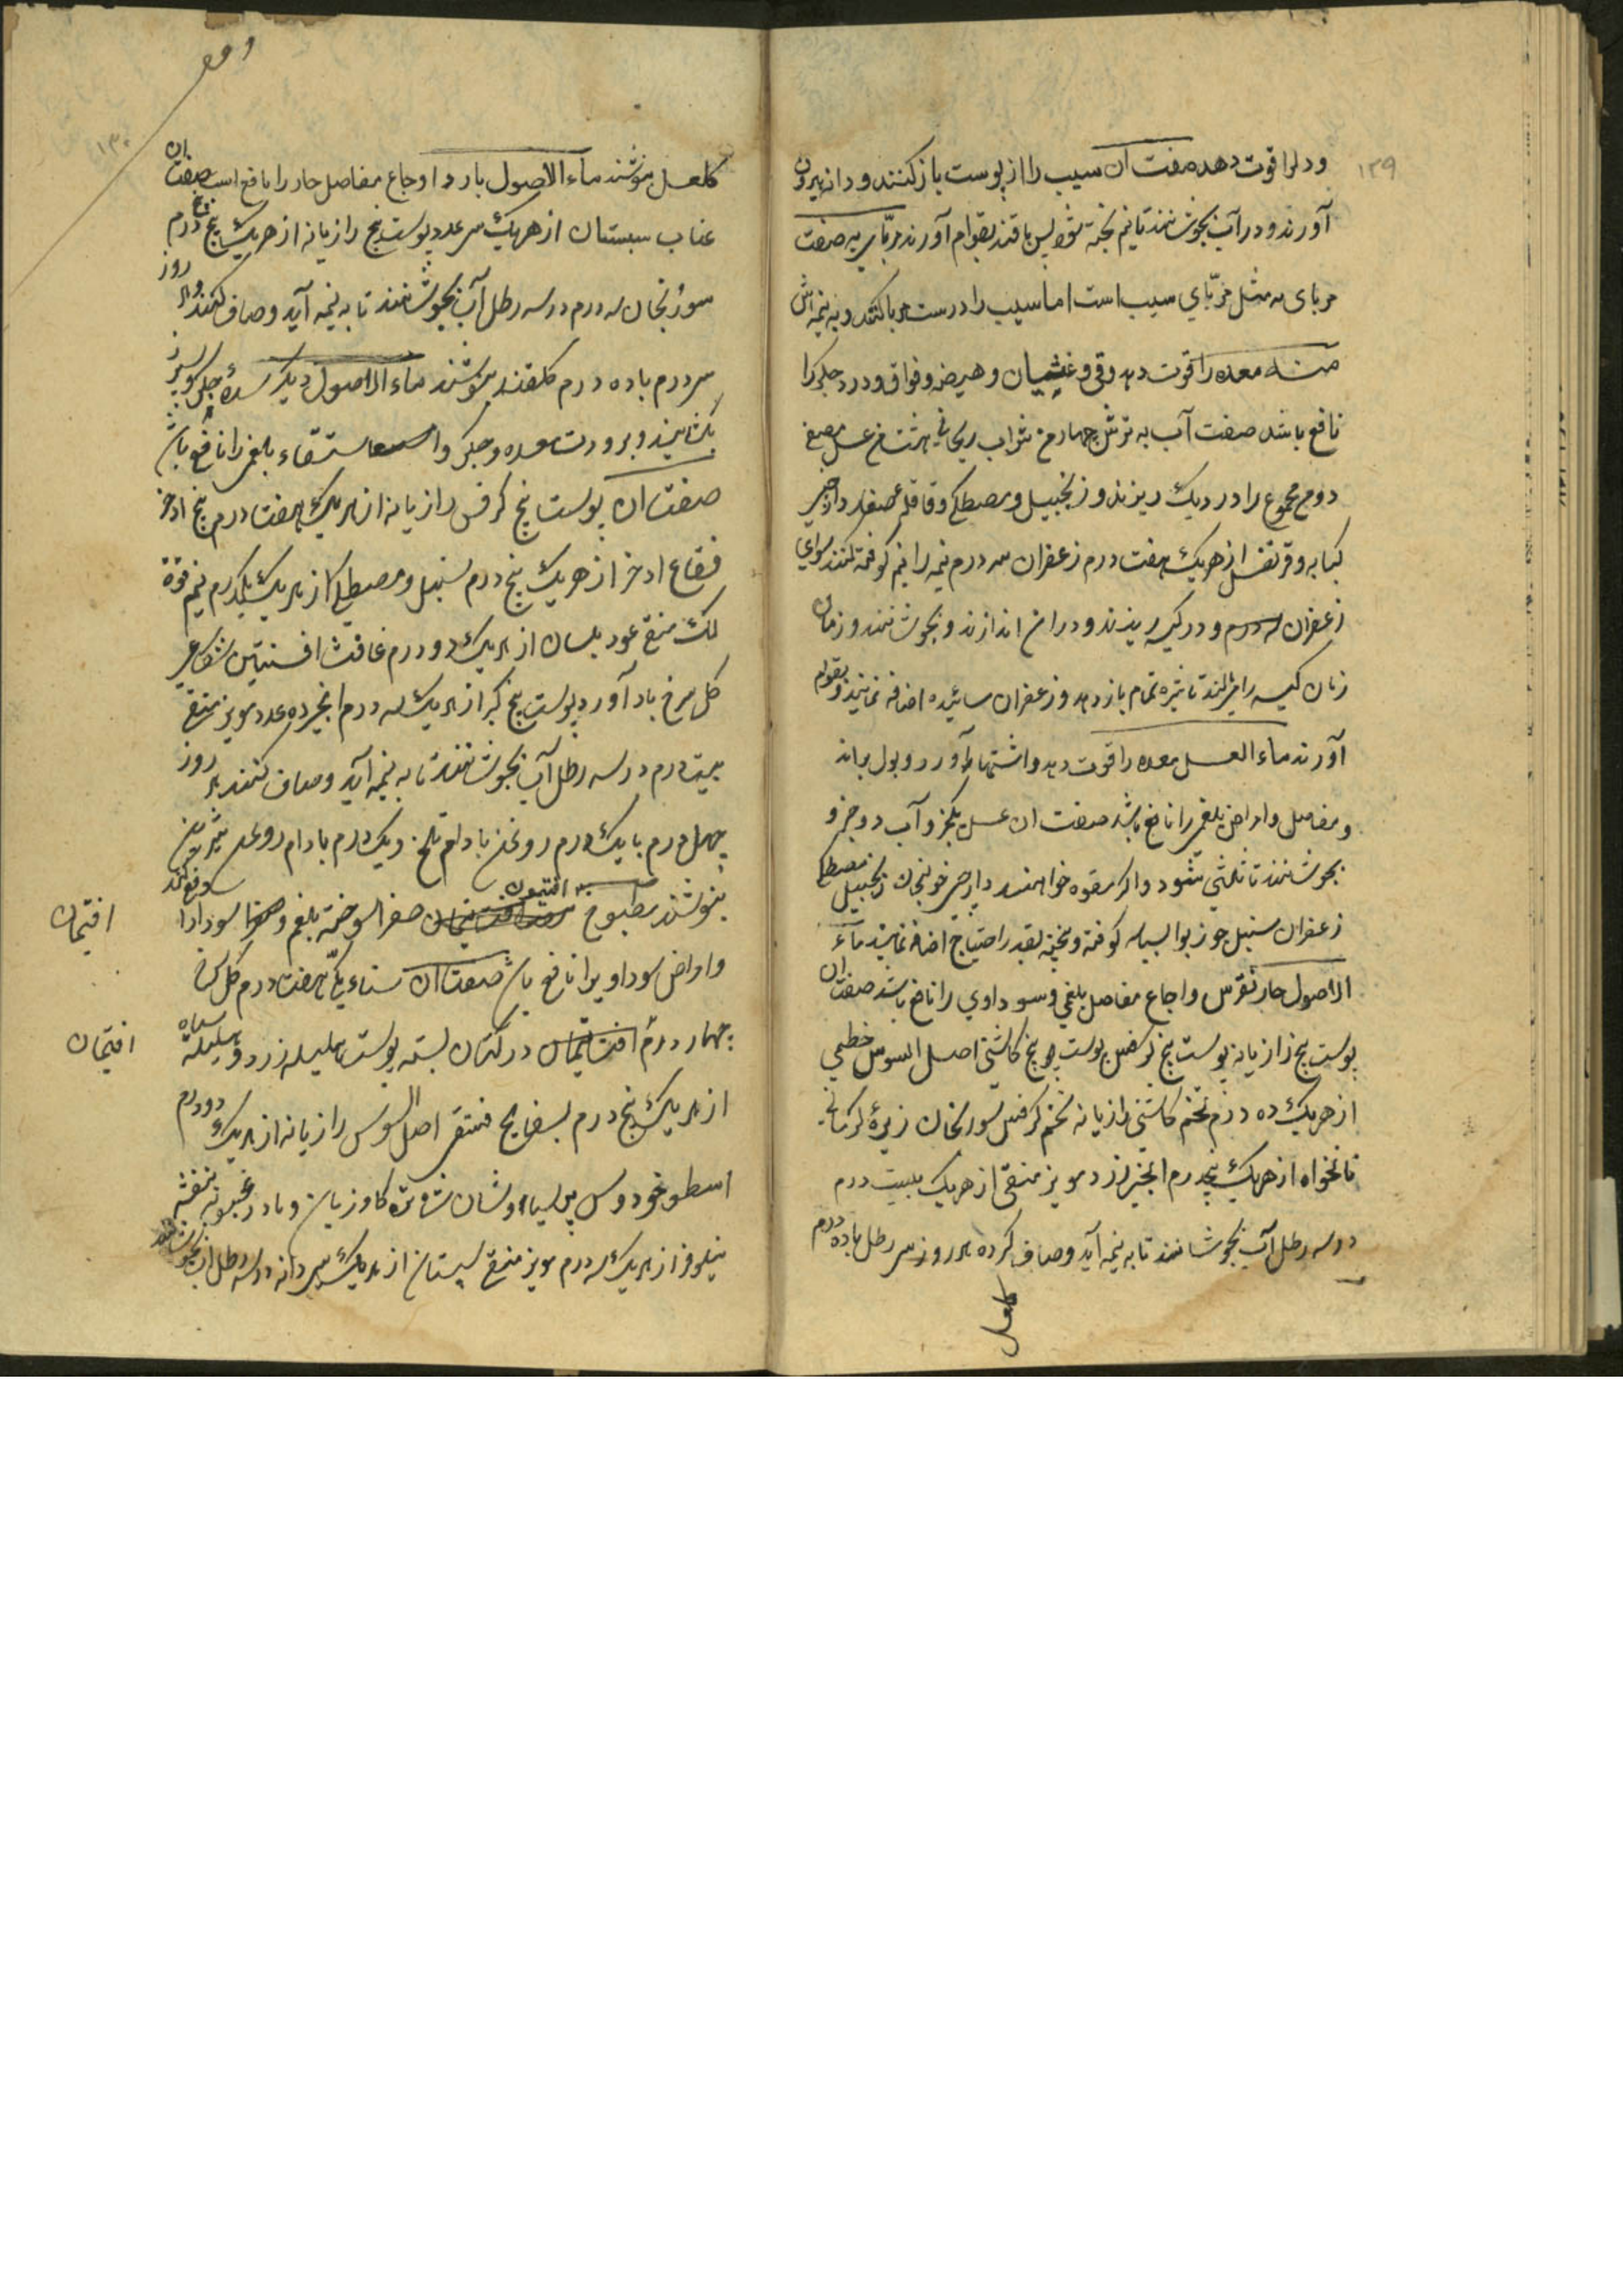 ۱۲۹
و دلرا قوت دهد صفت آن سیب را از پوست باز کنند و دانه بیرون
آورند و در آب بجوشانند تا نیم پخته شود پس با قند بقوام آورند مربّای به صفت
مربای به مثل مربّاي سیب است اما سیب را درست مربا کنند و به نیمه
معده را قوت دهد و قی و غثیان و هیضه و فواق و درد جگر را
نافع باشد صفت آب به ترش چهار من شراب ریحانی عسل مصفی
دو من مجموع را در دیک ریزند و زنجبیل و مصطکی و قاقله دارچینی
کبابه و قرنفل از هریک هفت درم زعفران سه درم نیم کوفته کنند سوای
زعفران و در کیسه ریزند و در ان اندازند و بجوشانند و زمان
زمان کیسه را تا شیره تمام باز دهد و زعفران سائیده اضافه نمایند و بقوام
آورند ماء العسل معده را قوت دهد و اشتها آورد و بول براند
و مفاصل و امراض بلغمی را نافع باشد صفت ان عسل یکجزو آب دو جزو
بجوشانند تا ثلثی شود و اکر مقوه خواهند دارچینی خولنجان زنجبیل مصطکی
زعفران سنبل جوزبوا بسباسه کوفته و بیخته بقدر احتیاج اضافه نمایند ماء
الاصول حار نقرس و اوجاع مفاصل بلغمی و سوداوي را نافع باشد صفت ان
پوست بیخ رازیانه پوست بیخ کرفس پوست بیخ کاشنی اصل السوس خطمی
از هریک ده درم تخم کاشنی رازیانه تخم کرفس سورنجان زیرهٔ کرمانی
نانخواه از هریک پنجدرم انجیر زرد مویز منقی از هریک بیست درم
در سه رطل آب بجوشانند تا به نیمه آید و صاف کرده هر روز سی رطل با ده درم
کلعسل
۱۳۰
کلعسل بنوشند ماء الاصول بارد اوجاع مفاصل حار را نافع است صفت ان
عناب سبستان از هریک سی عدد پوست بیخ رازیانه از هریک پنج درم
سورنجان سه درم در سه رطل آب بجوشانند تا به نیمه آید و صاف کنند هر روز
سی درم با ده درم کلقند بنوشند ماء الاصول دیکر سدهٔ جگر و سپرز
بکشایند و برودت معده و جگر و استسقاء بلغمی را نافع باشد
صفت ان پوست بیخ کرفس رازیانه از هریک هفت درم بیخ اذخر
فقاع اذخر از هریک پنج درم سنبل و مصطکی از هریک یکدرم نیم فوه
لک منقی عود بلسان از هریک دو درم غافث افسنتین شکاعی
کل سرخ باد آورد پوست بیخ کبر از هریک سه درم انجیر ده عدد مویز منقی
بیست درم در سه رطل آب بجوشانند تا به نیمه آید و صاف کنند هر روز
چهل درم با یک درم روغن بادام تلخ و یک درم بادام روغن شیرین
بنوشند مطبوخ افتیمون صفرا سوخته بلغم و سودا را دفع کند
و امراض سوداویرا نافع باشد صفت ان سناء مکّی هفت درم کل سرخ
چهار درم افتیمان در کتان بسته پوست هلیله زرد و هلیله سیاه
از هریک پنج درم بسفایج فستقی اصل السوس رازیانه از هریک دو درم
اسطوخودوس پرسیاوشان شاهتره کاوزبان و بادرنجبویه بنفشه
نیلوفر از هریک سه درم مویز منقی سبستان از هریک سی دانه در سه رطل آب بجوشانند
افتیمان
افتیمان